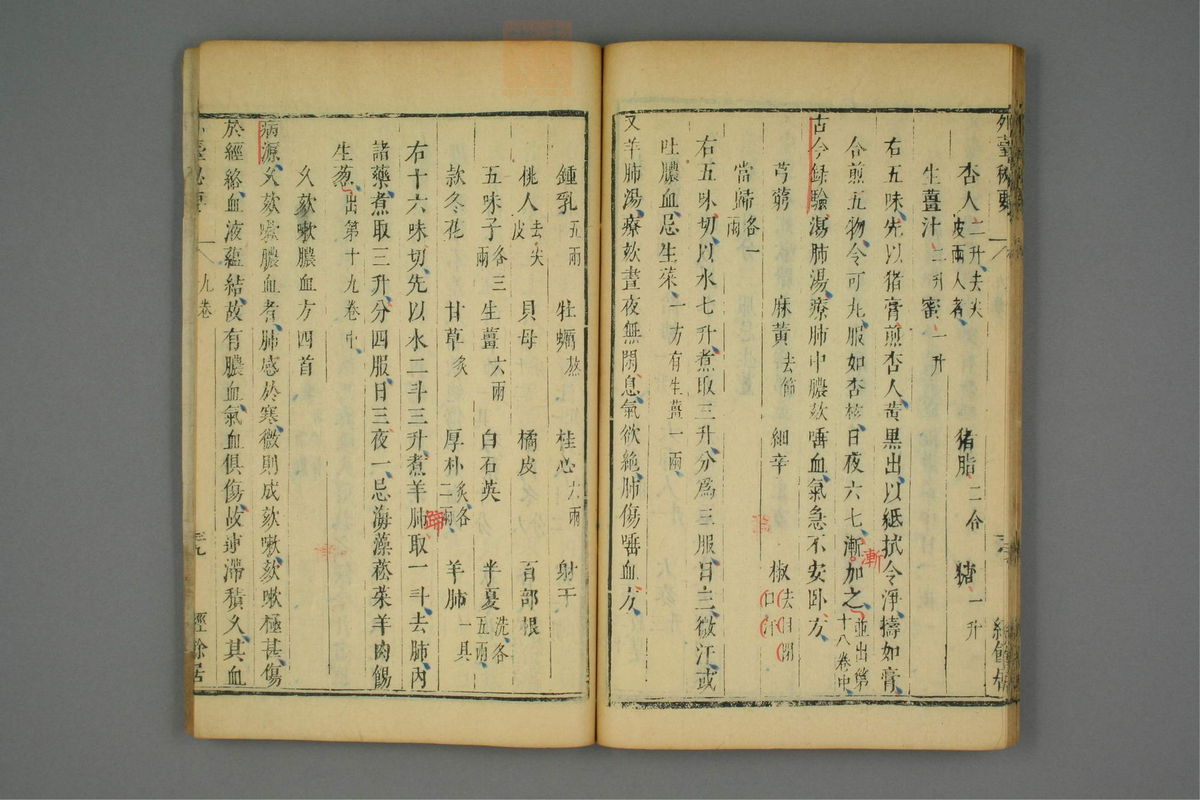 外臺秘要
杏人二升去尖皮兩人者 猪脂二合 猪一升
生薑汁二升 蜜一升
右五味先以猪膏煎杏人黃黑出以紙拭令淨擣如膏
合煎五物令可丸服如杏核日夜六七漸加之並出第十八卷中
漸
古今錄驗瀉肺湯療肺中膿欬唾血氣急不安卧方
芎藭 麻黃去節 細辛 椒去目閉口汗
當歸各一兩
右五味切以水七升煮取三升分爲三服日三微汗或
吐膿血忌生菜一方有生薑一兩
又羊肺湯療欬晝夜無閑息氣欲絶肺傷唾血方
鍾乳五兩 牡蠣熬 桂心六兩 射干
桃人去尖皮 貝母 橘皮 百部根
五味子各三兩 生薑六兩 白石英 半夏洗各五兩
款冬花 甘草炙 厚朴炙各二兩 羊肺一具
右十六味切先以水二斗三升煮羊肺取一斗去肺內
諸藥煮取三升分四服日三夜一忌海藻菘菜羊肉餳
生葱出第十九卷中
久欬嗽膿血方四首
病源久欬嗽膿血者肺感於寒微則成欬嗽欬嗽極甚傷
於經絡血液蘊結故有膿血氣血俱傷故連滯積久其血
九卷
經餘居